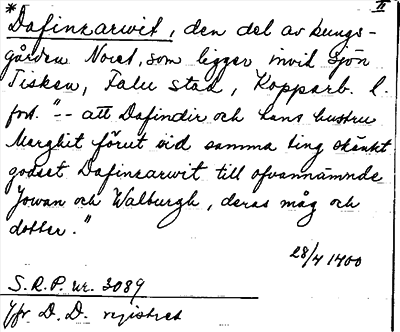 *Dafinzarwit, den del av kungs-
II
gården Noret, som ligger invid sjön
Tisken, Falu stad, Kopparb. l.
fort. "-- att Dafindir och hans hustru
Marghit förut vid samma ting skänkt
godset Dafinzarwit till ofvannämnde
Jowan och Walburgh, deras måg och
dotter."
28/4 1400
S.R.P. nr. 3089
Jfr D.D. registret